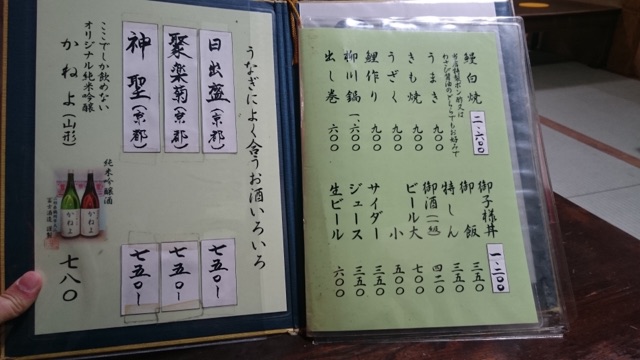 鰻白焼 二、六〇〇
当店特製ポン酢又は
わさび醤油のどちらでもお好みで
うまき 九〇〇
きも焼 六〇〇
うざく 九〇〇
鯉作り 九〇〇
柳川鍋 一、六〇〇
出し巻 六〇〇
御子様丼 一、二〇〇
御飯 三五〇
特しん 三五〇
御酒(一級) 四二〇
ビール大 七〇〇
小 五〇〇
サイダー 三五〇
ジュース 三五〇
生ビール 六〇〇
うなぎによく合うお酒いろいろ
日出盛(京都) 七五〇〜
聚楽菊(京都) 七五〇〜
神聖(京都) 七五〇〜
ここでしか飲めない
オリジナル純米吟醸
かねよ(山形) 七八〇
純米吟醸酒
かねよ
かねよ
冨士酒造 謹製